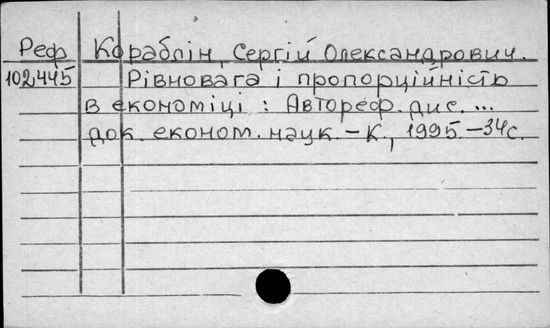 Реф Кораблін, Сергій Олександрович.
102445 Рівновага і пропорційність
в економіці : Автореф. дис. ...
док. економ. наук. – К., 1995. – 34с.